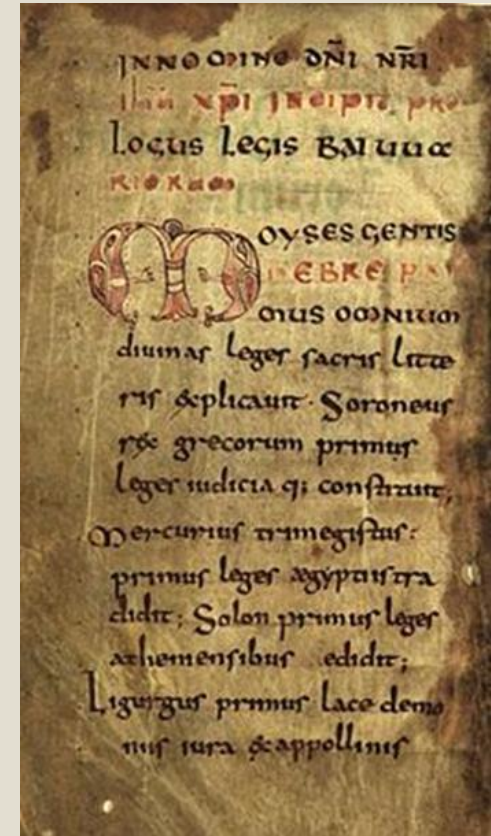 INNOMINE DN̄I NR̄I
ihū xp̄i INCIPIT PRO
LOGUS LEGIS BAIUUA
RIORUM
MOYSES GENTIS
HEBREE PRI
MUS OMNIUM
diuinas leges sacris litte
ris &plicauit · Soroneus
rex grecorum primus
leges iudicia q; constituit;
Mercurius trimegistus:
primus leges ægyptiis tra
didit; Solon primus leges
athemensibus edidit;
Ligurgus primus lacedemo
niis iura & appollinis